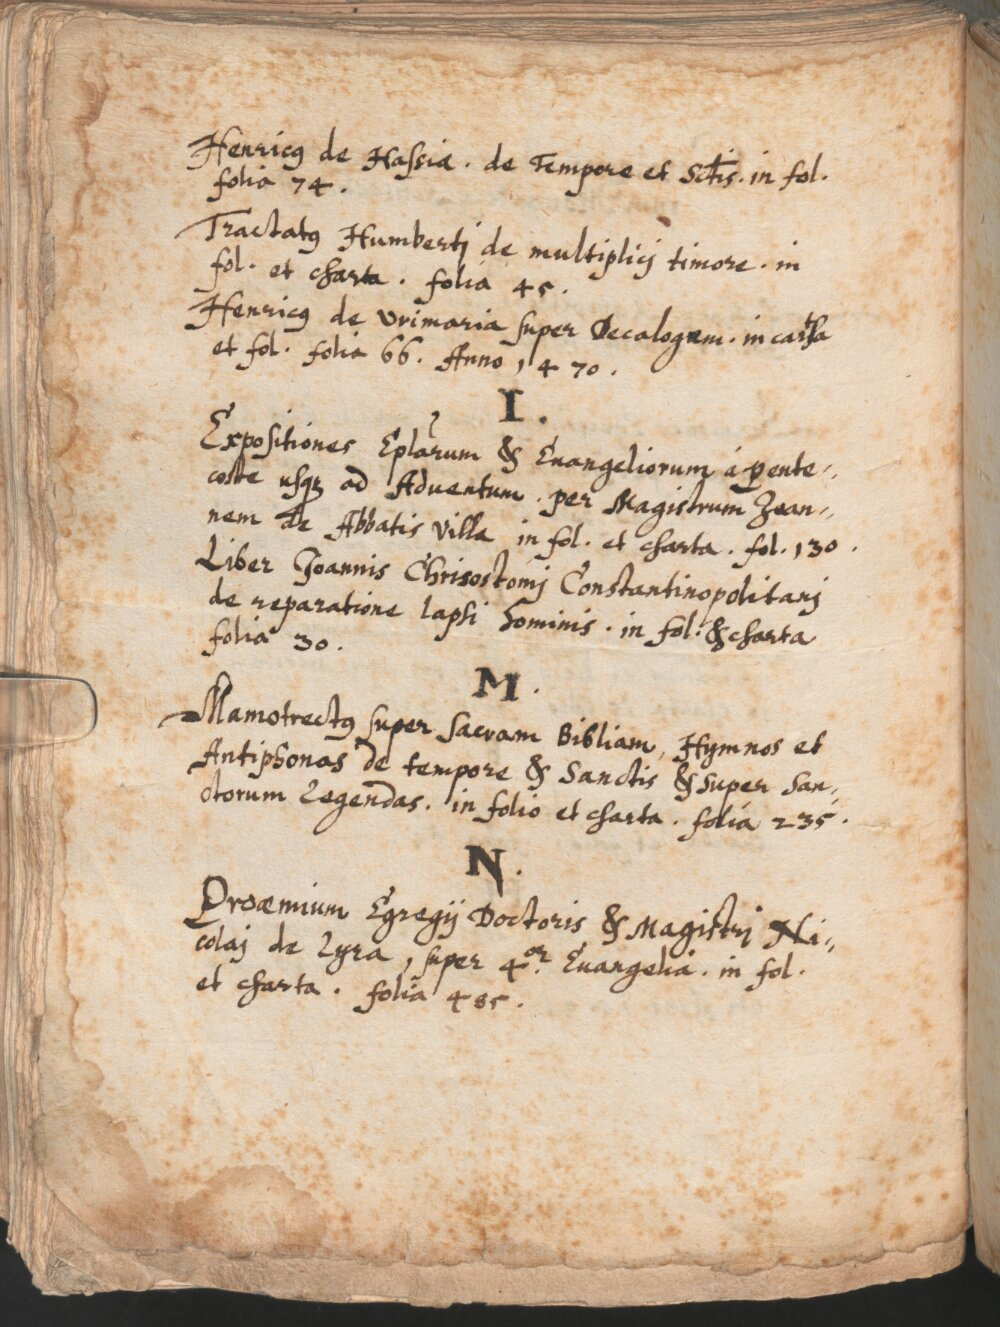 Henricꝰ de Hassia. de Tempore et Sctis. in fol.
folia 74.
Tractatꝰ Humbertj de multiplicj timore. in
fol. et charta. folia 45.
Henricꝰ de Vrimaria super Decalogum. in carta
et fol. folia 66. Anno 1470.
I.
Expositiones Eplarum & Euangeliorum á pente„
coste usqꝫ ad Aduentum. per Magistrum Joan„
nem de Abbatis Villa in fol. et charta. fol. 130.
Liber Joannis Chrisostomj Constantinopolitanj
de reparatione lapsi hominis. in fol. & charta
folia 30.
M.
Mamotrectꝰ super sacram Bibliam, Hymnos et
Antiphonas de tempore & Sanctis & super San„
ctorum Legendas. in folio et charta. folia 235.
N.
Proæmium Egregij Doctoris & Magistrj Ni„
colaj de Lyra, super 4or. Euangelia. in fol.
et charta. folia 485.